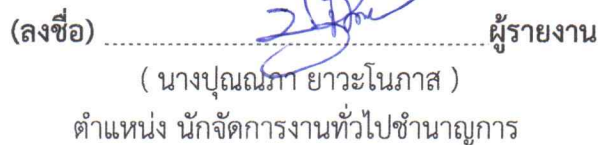 (ลงชื่อ) ........................................................ ผู้รายงาน
( นางปุณณภา ยาวะโนภาส )
ตำแหน่ง นักจัดการงานทั่วไปชำนาญการ